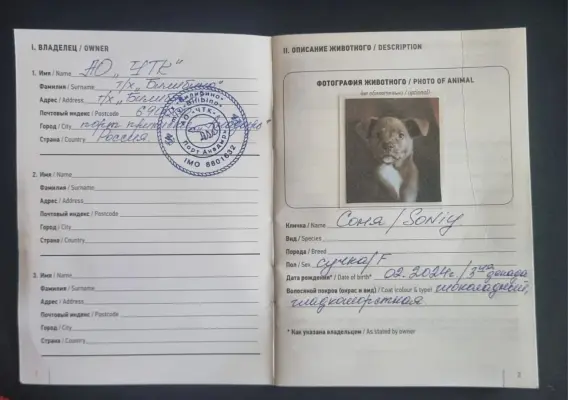 I. ВЛАДЕЛЕЦ / OWNER
1. Имя / Name АО „ЧТК"
Фамилия / Surname т/х „Билибино"
Адрес / Address т/х „Билибино"
Почтовый индекс / Postcode
Город / City порт приписки
Страна / Country Россия.
ПОРТ АНАДЫРЬ
АО «ЧТК»
IMO 8801632
2. Имя / Name
Фамилия / Surname
Адрес / Address
Почтовый индекс / Postcode
Город / City
Страна / Country
3. Имя / Name
Фамилия / Surname
Адрес / Address
Почтовый индекс / Postcode
Город / City
Страна / Country
II. ОПИСАНИЕ ЖИВОТНОГО / DESCRIPTION
ФОТОГРАФИЯ ЖИВОТНОГО / PHOTO OF ANIMAL
(не обязательно / optional)
Кличка / Name Соня / Soniy
Вид / Species
Порода / Breed
Пол / Sex сучка / F
Дата рождения* / Date of birth* 02.2024г. / 3-ая декада
Волосяной покров (окрас и вид) / Coat (colour & type) шоколадный,
гладкошёрстная
* Как указана владельцем / As stated by owner